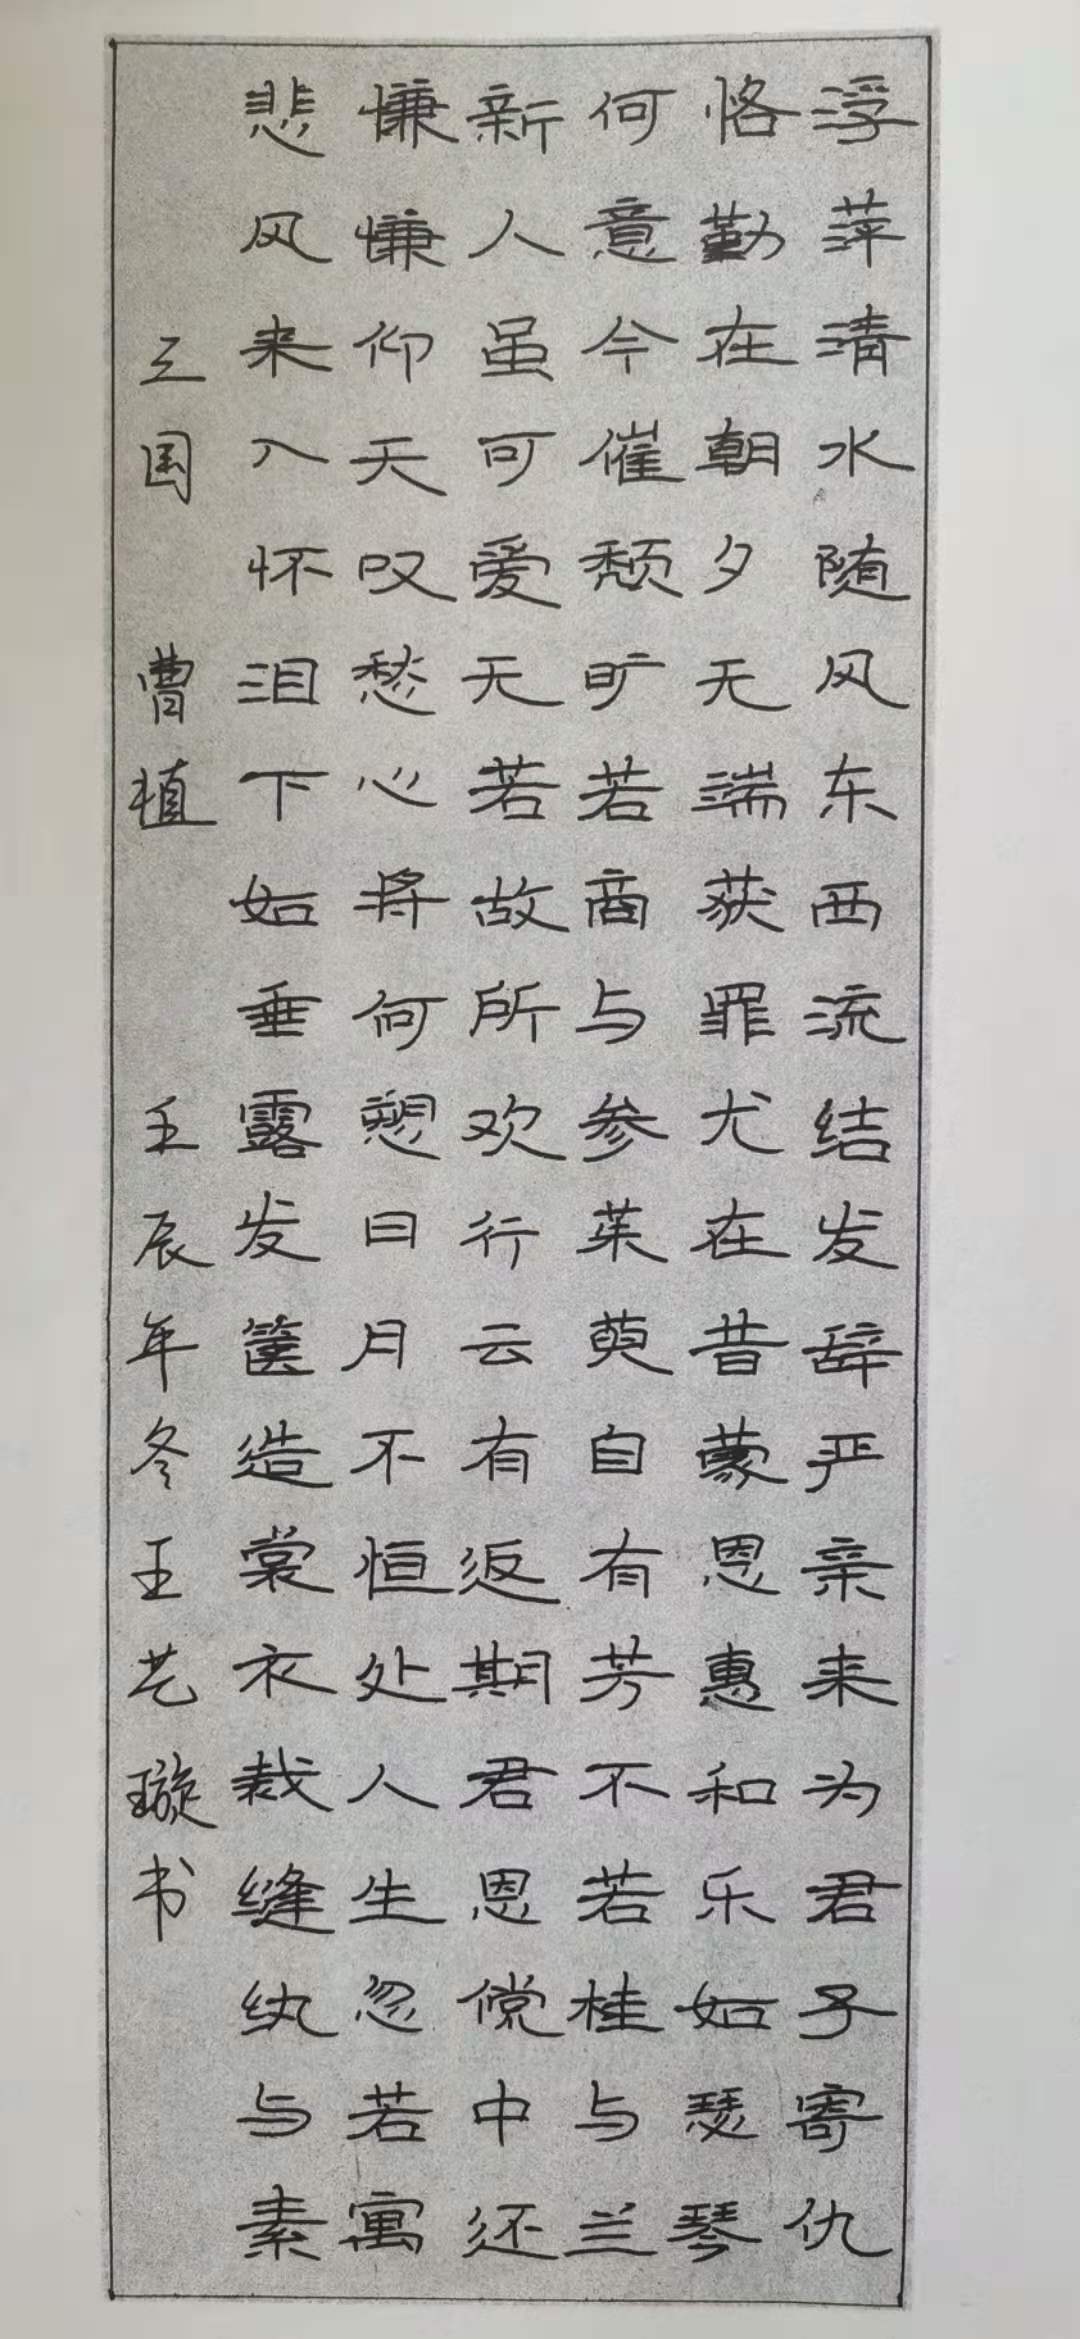 浮萍清水随风东西流结发辞严亲来为君子寄仇
恪勤在朝夕无端获罪尤在昔蒙恩惠和乐如瑟琴
何意今催颓旷若商与参茱萸自有芳不若桂与兰
新人虽可爱无若故所欢行云有返期君恩傥中还
慊慊仰天叹愁心将何愬日月不恒处人生忽若寓
悲风来入怀泪下如垂露发箧造裳衣裁缝纨与素
三国 曹植 壬辰年冬王艺璇书